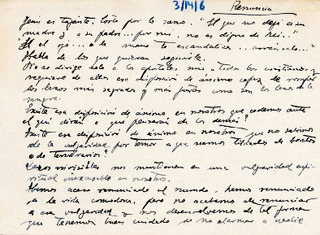 3/1416
Renuncia
Jesús es tajante, corta por lo sano. "El que no deja a su
madre y a su padre... por mí, no es digno de Mí..."
Si el ojo... o la mano te escandaliza...
Habla de los que quieran seguirle.
No se dirige solo a los apóstoles, sino a todos los cristianos.
requiere de ellos esa disposición de ánimo capaz de romper
los lazos más sagrados y más fuertes como son los lazos de la
sangre.
¿Existe esa disposición de ánimo en nosotros que cedemos ante
el qué dirán, el qué pensarán de los demás?
¿Existe esa disposición de ánimo en nosotros que no salimos
de la vulgaridad por temor a que seamos tildados de beatos
o de
Lazos invisibles nos mantienen en una vulgaridad espi-
ritual inexcusable en nosotros.
Hemos acaso renunciado al mundo, hemos renunciado
a la vida comodona, pero no acabamos de renunciar
a esa vulgaridad y nos desenvolvemos de tal forma
que tenemos buen cuidado de no alarmar a nadie